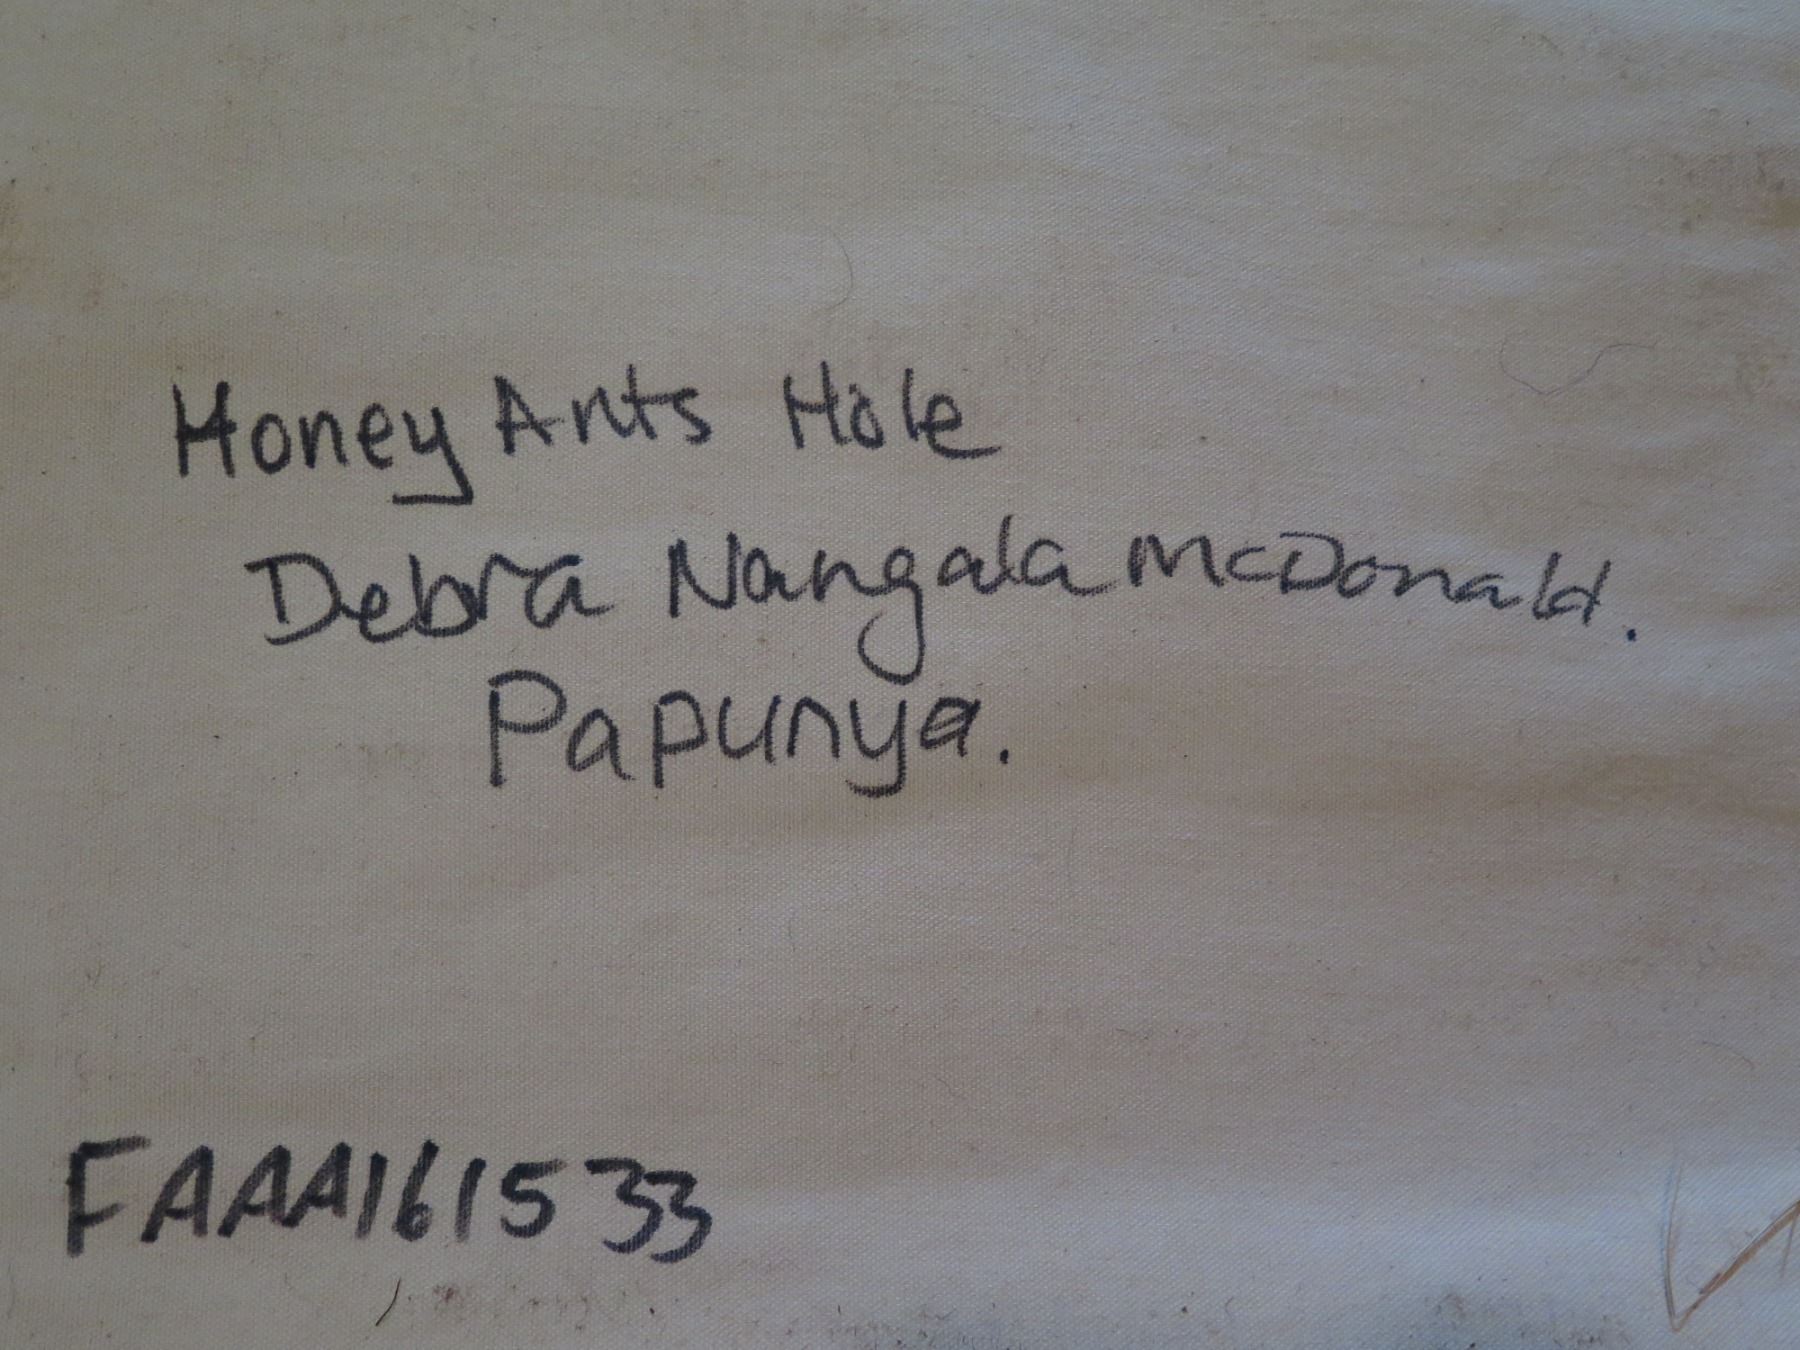 Honey Ants Hole
Debra Nangala McDonald.
Papunya.
FAAA161533